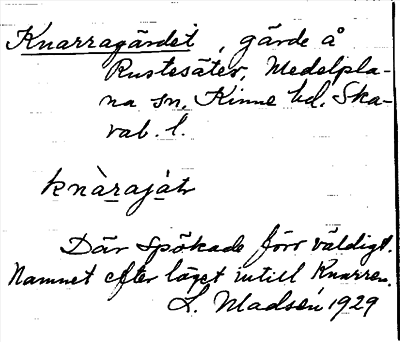 Knarragärdet, gärde å
Rustesäter, Medelpla-
na sn, Kinne hd. Ska-
rab. l.
knàrajátr
Där spökade förr väldigt.
Namnet efter läget intill Knarren.
L. Madsén 1929